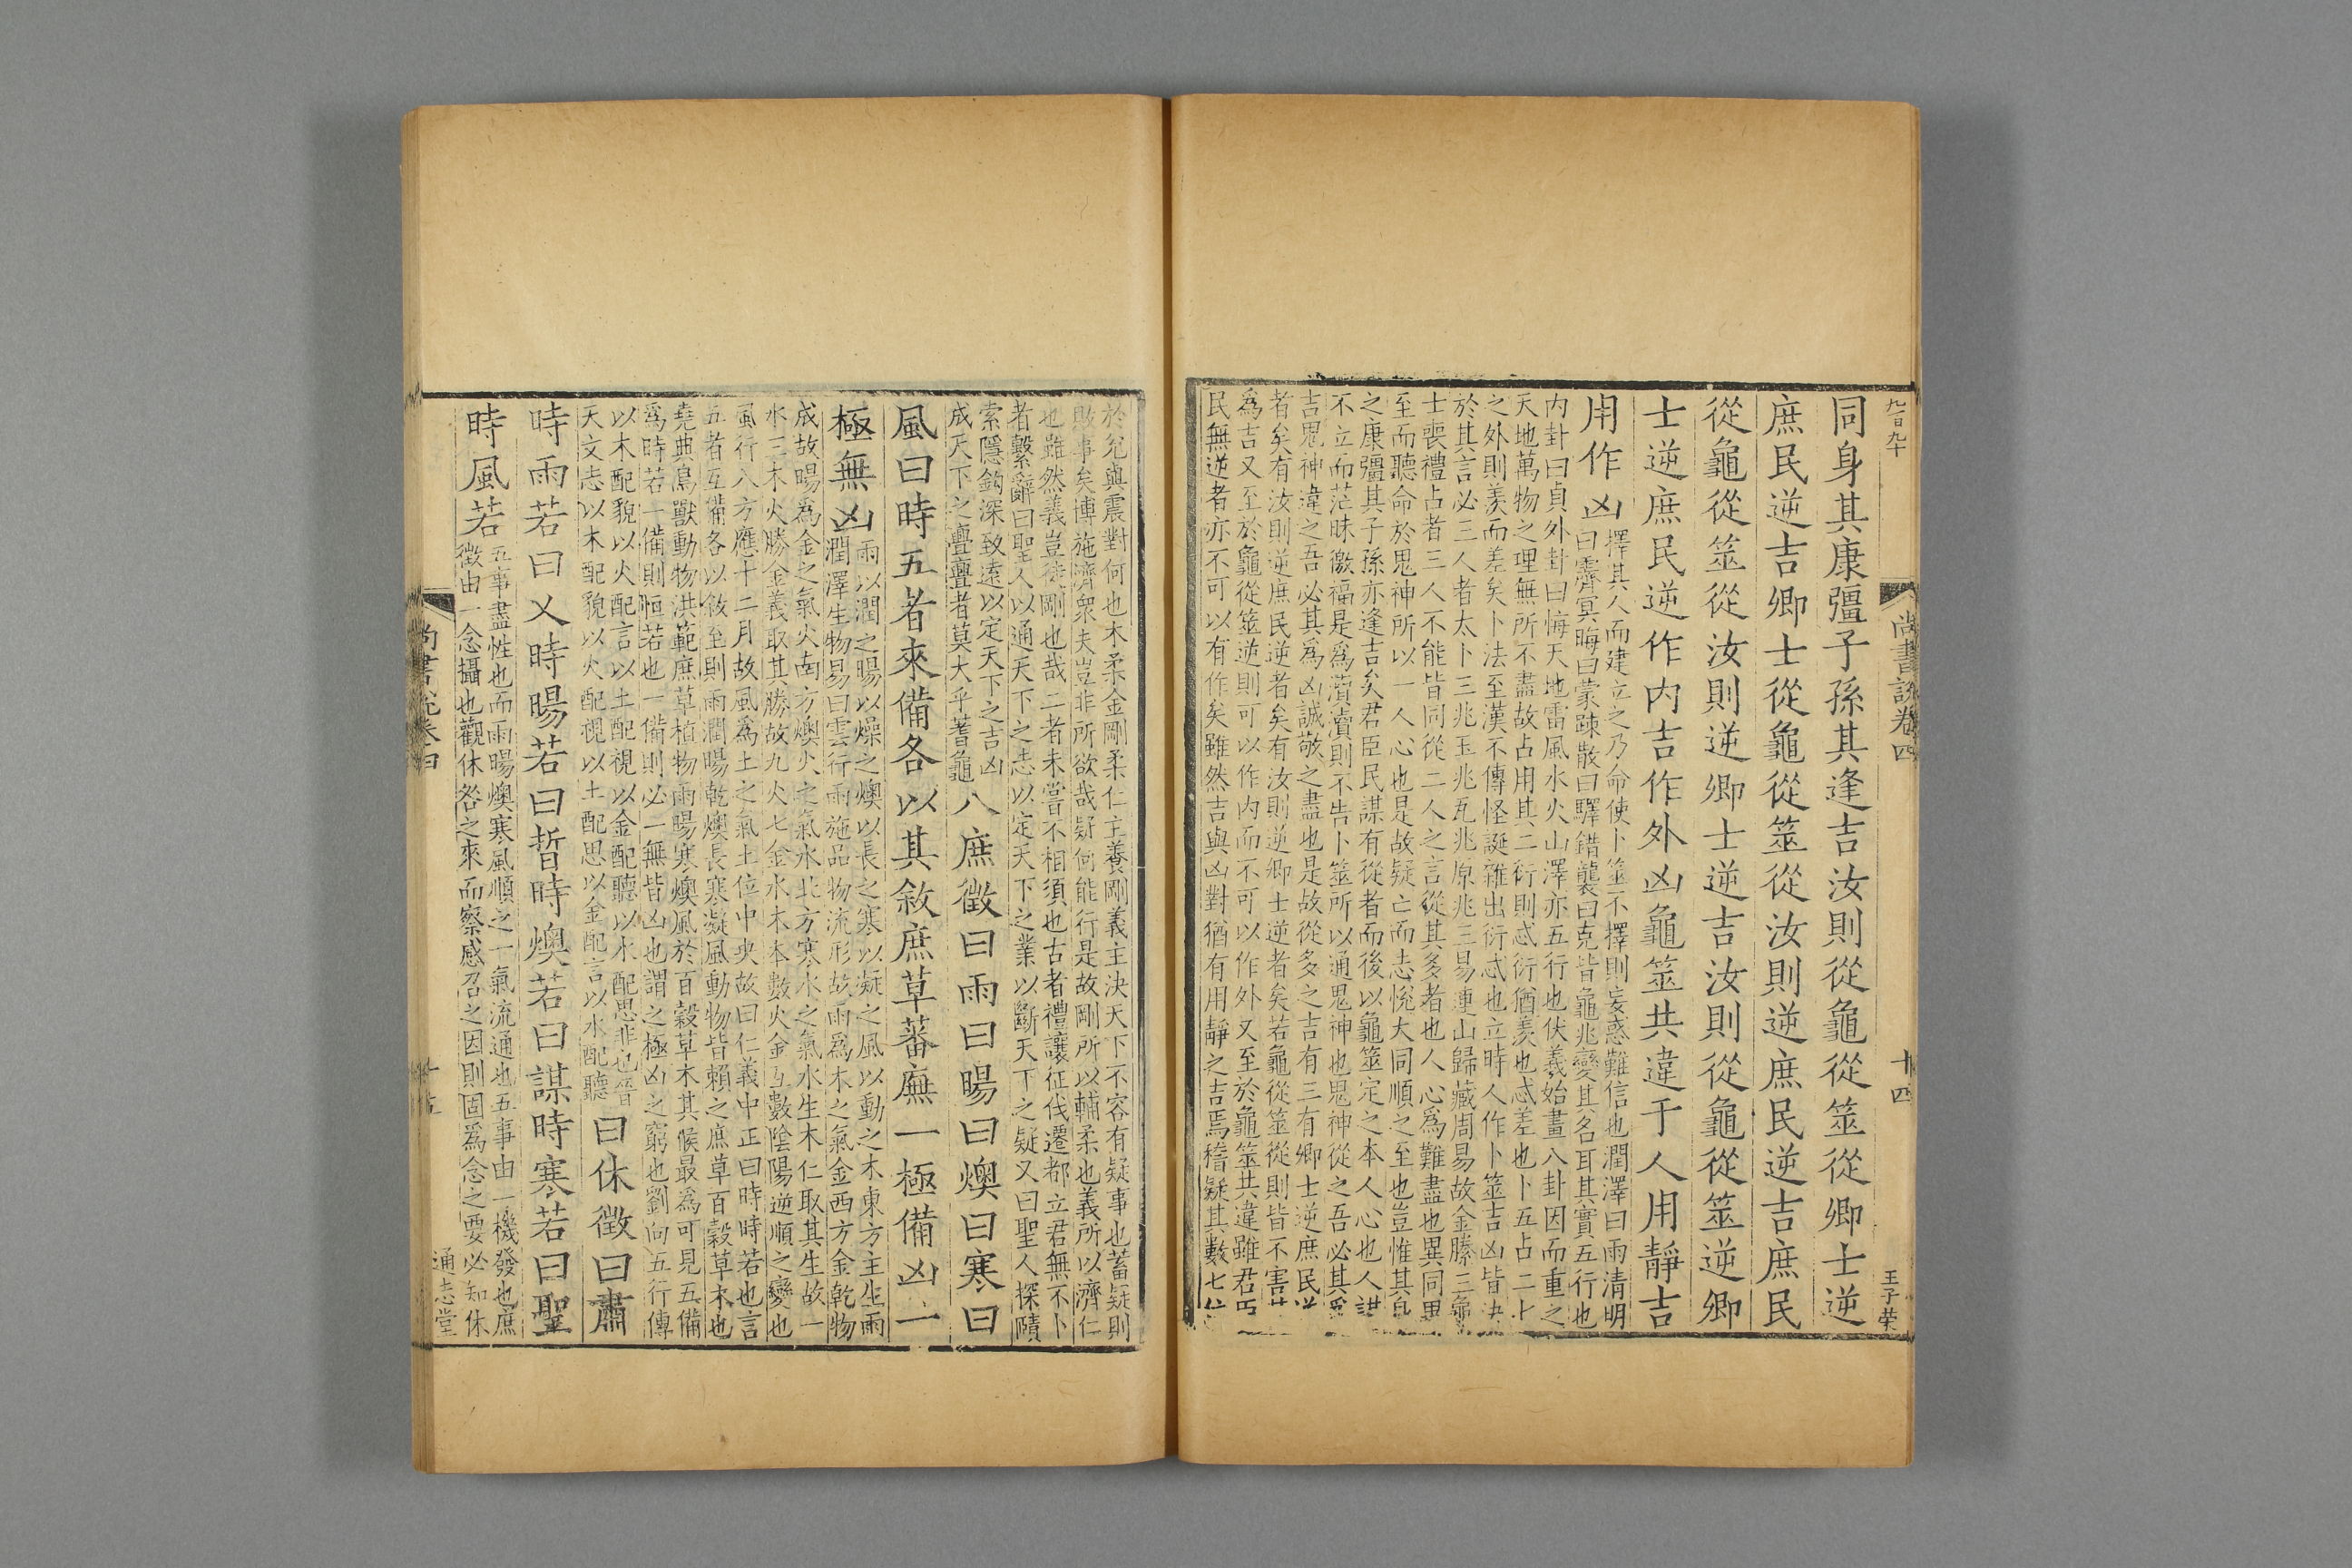 同身其康彊子孫其逢吉汝則從龜從筮從卿士逆
庶民逆吉卿士從龜從筮從汝則逆庶民逆吉庶民
從龜從筮從汝則逆卿士逆吉汝則從龜從筮逆卿
士逆庶民逆作內吉作外凶龜筮共違于人用靜吉
用作凶
擇其人而建立之乃命使卜筮不擇則妄惑難信也潤澤曰雨清明
曰霽冥晦曰蒙疎散曰驛錯襲曰克皆龜兆變其名耳其實五行也
內卦曰貞外卦曰悔天地雷風水火山澤亦五行也伏羲始畫八卦因而重之
天地萬物之理無所不盡故占用其二衍則忒衍猶羨也忒差也卜五占二七
之外則羨而差矣卜法至漢不傳怪誕雜出衍忒也立時人作卜筮吉凶皆決
於其言必三人者太卜三兆玉兆瓦兆原兆三易連山歸藏周易故金縢三龜
士喪禮占者三人不能皆同從二人之言從其多者也人心為難盡也異同
至而聽命於鬼神所以一人心也是故疑亡而志悅大同順之至也豈惟其
之康彊其子孫亦逢吉矣君臣民謀有從者而後以龜筮定之本人心也人
不立而茫昧徼福是為瀆瀆則不告卜筮所以通鬼神也鬼神從之吾必其
吉鬼神違之吾必其為凶誠敬之盡也是故從多之吉有三有卿士逆庶民
者矣有汝則逆庶民逆者矣有汝則逆卿士逆者矣若龜從筮從則皆不害
為吉又至於龜從筮逆則可以作內而不可以作外又至於龜筮共違雖君臣
民無逆者亦不可以有作矣雖然吉與凶對猶有用靜之吉焉稽疑其數七
九百九十
尚書說卷四
十四
王子榮
於兌與震對何也木柔金剛柔仁主養剛義主決天下不容有疑事也蓄疑則
敗事矣博施濟衆夫豈非所欲哉疑何能行是故剛所以輔柔也義所以濟仁
也雖然義豈徒剛也哉二者未嘗不相須也古者禮讓征伐遷都立君無不卜
者繫辭曰聖人以通天下之志以定天下之業以斷天下之疑又曰聖人探賾
索隱鈎深致遠以定天下之吉凶
成天下之亹亹者莫大乎蓍龜
八庶徵曰雨曰暘曰燠曰寒曰
風曰時五者來備各以其敘庶草蕃廡一極備凶一
極無凶
雨以潤之暘以燥之燠以長之寒以凝之風以動之木東方主生雨
潤澤生物易曰雲行雨施品物流形故雨為木之氣金西方金乾物
成故暘為金之氣火南方燠火之氣水北方寒水之氣水生木仁取其生故一
水三木火勝金義取其勝故九火七金水木本數火金互數陰陽逆順之變也
風行八方應十二月故風為土之氣土位中央故曰仁義中正曰時時若也言
五者互備各以敘至則雨潤暘乾燠長寒凝風動物皆賴之庶草百穀草木也
堯典鳥獸動物洪範庶草植物雨暘寒燠風於百穀草木其候最為可見五備
為時若一備則恒若也一備則必一無皆凶也謂之極凶之窮也劉向五行傳
以木配貌以火配言以土配視以金配聽以水配思非也晉
天文志以木配貌以火配視以土配思以金配言以水配聽
曰休徵曰肅
時雨若曰乂時暘若曰晢時燠若曰謀時寒若曰聖
時風若
五事盡性也而雨暘燠寒風順之一氣流通也五事由一機發也庶
徵由一念攝也觀休咎之來而察感召之因則固為念之要必知休
尚書說卷四
十五
通志堂